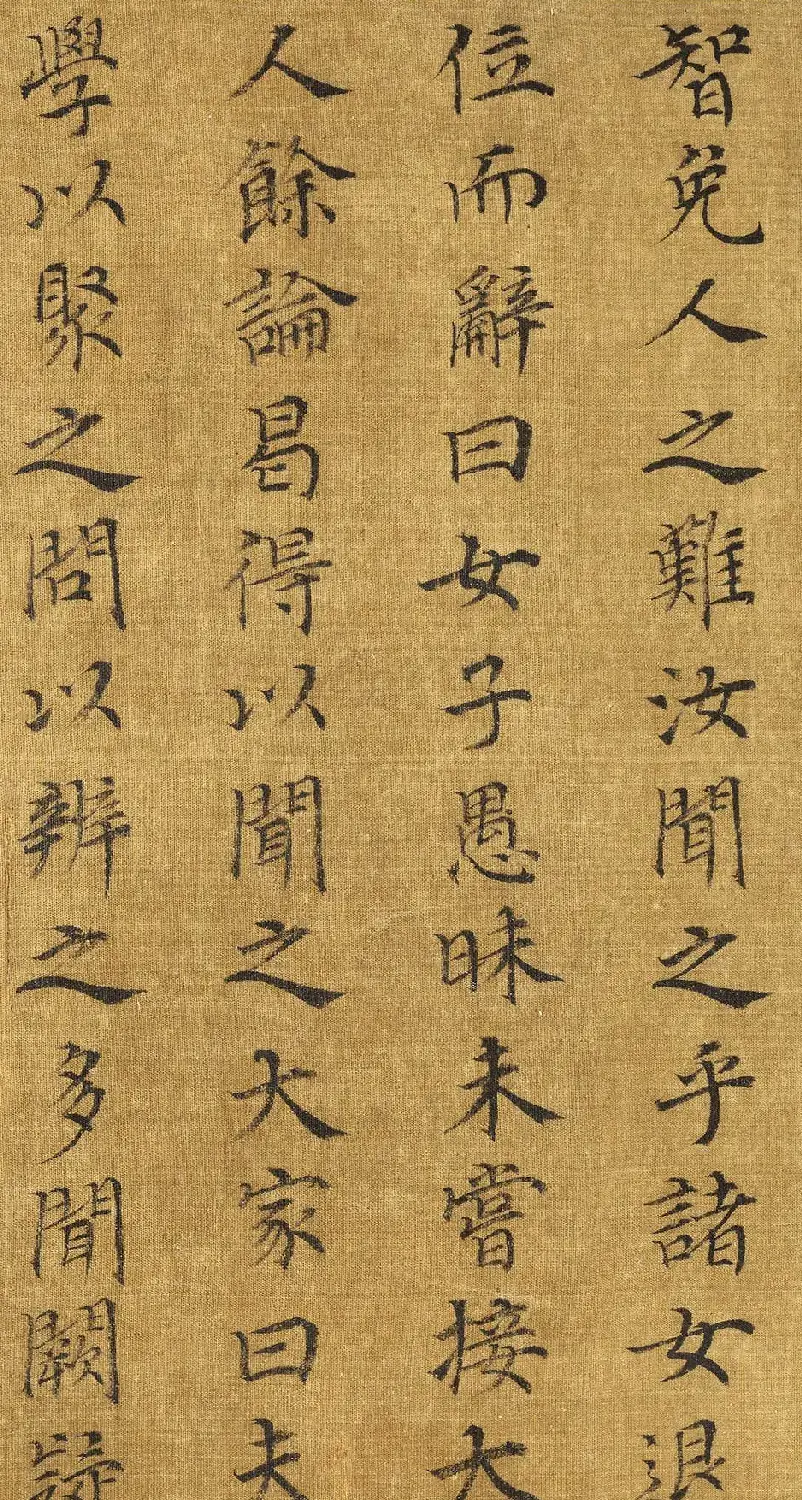 智免人之難汝聞之乎諸女退
位而辭曰女子愚昧未嘗接大
人餘論曷得以聞之大家曰夫
學以聚之問以辨之多聞闕疑